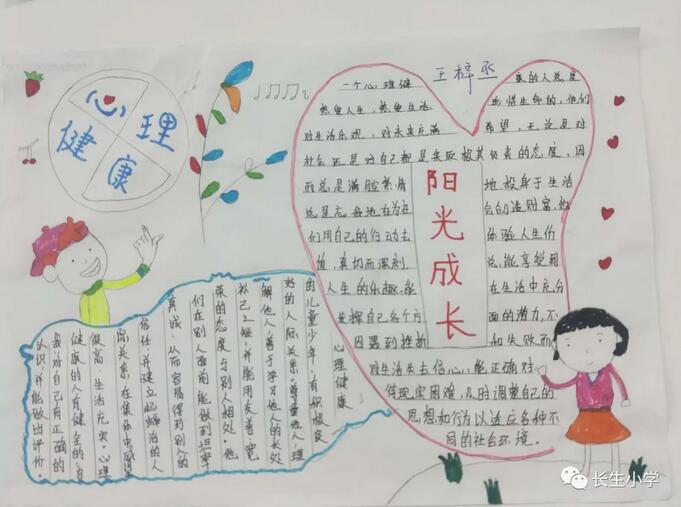 心理
健康
王梓丞
一个心理健康的人总是
热爱人生,热爱生活,
对生活乐观,对未来充满希望,无论是对
社会还是对自己都是采取极其负责的态度,因
而总是满腔热情地投身于生活
们用自己的行动去体验人生价
值,真切而深刻
人生的乐趣,能在生活中充分
发挥自己各个方面的潜力,不
因遇到挫折和失败而
对生活失去信心,能正确对
待现实困难,及时调整自己的
思想和行为以适应各种不
同的社会环境。
阳光成长
心理健康
的儿童少年,有积极良
好的人际关系。尊重他人,理
解他人,善于学习他人的长处
补己之短,并能用友善、宽
容的态度与别人相处。他
们在别人面前能做到坦率
真诚,从而容易得到别人的
信任,并建立起
际关系,在集体中威望
很高,生活充实。心理
健康的人有健全的自
我,对自己有正确的
认识,并能做出评价。
长生小学